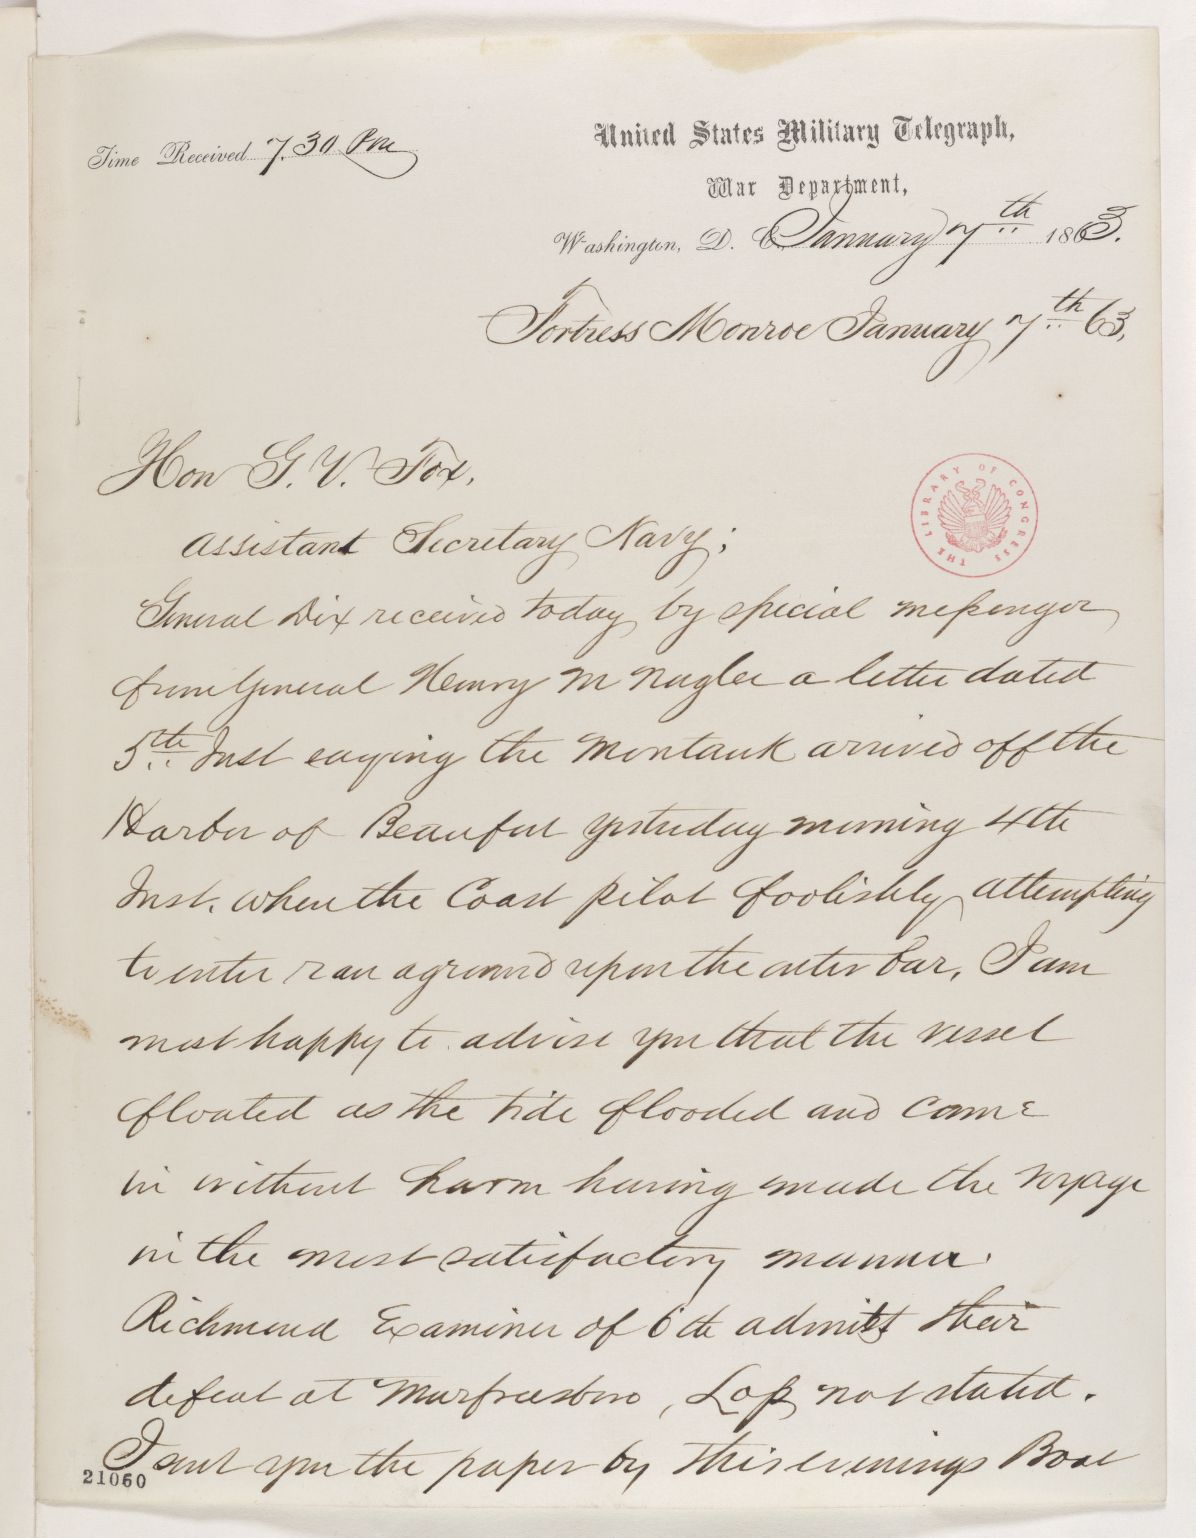 Time Received 7.30 Pm
United States Military Telegraph,
War Department,
Washington, D. C. January 7th 1863.
Fortress Monroe January 7th 63,
Hon G. V. Fox,
THE LIBRARY OF CONGRESS
Assistant Secretary Navy;
General Dix received today by special messenger
from General Henry M Naglee a letter dated
5th Inst saying the Montauk arrived off the
Harbor of Beaufort yesterday morning 4th
Inst. when the Coast pilot foolishly attempting
to enter ran aground upon the outer bar, I am
most happy to advise you that the vessel
floated as the tide flooded and came
in without harm having made the voyage
in the most satisfactory manner.
Richmond Examiner of 6th admits their
defeat at Murfreesboro, Loss not stated.
I sent you the paper by this evenings Boat
21060